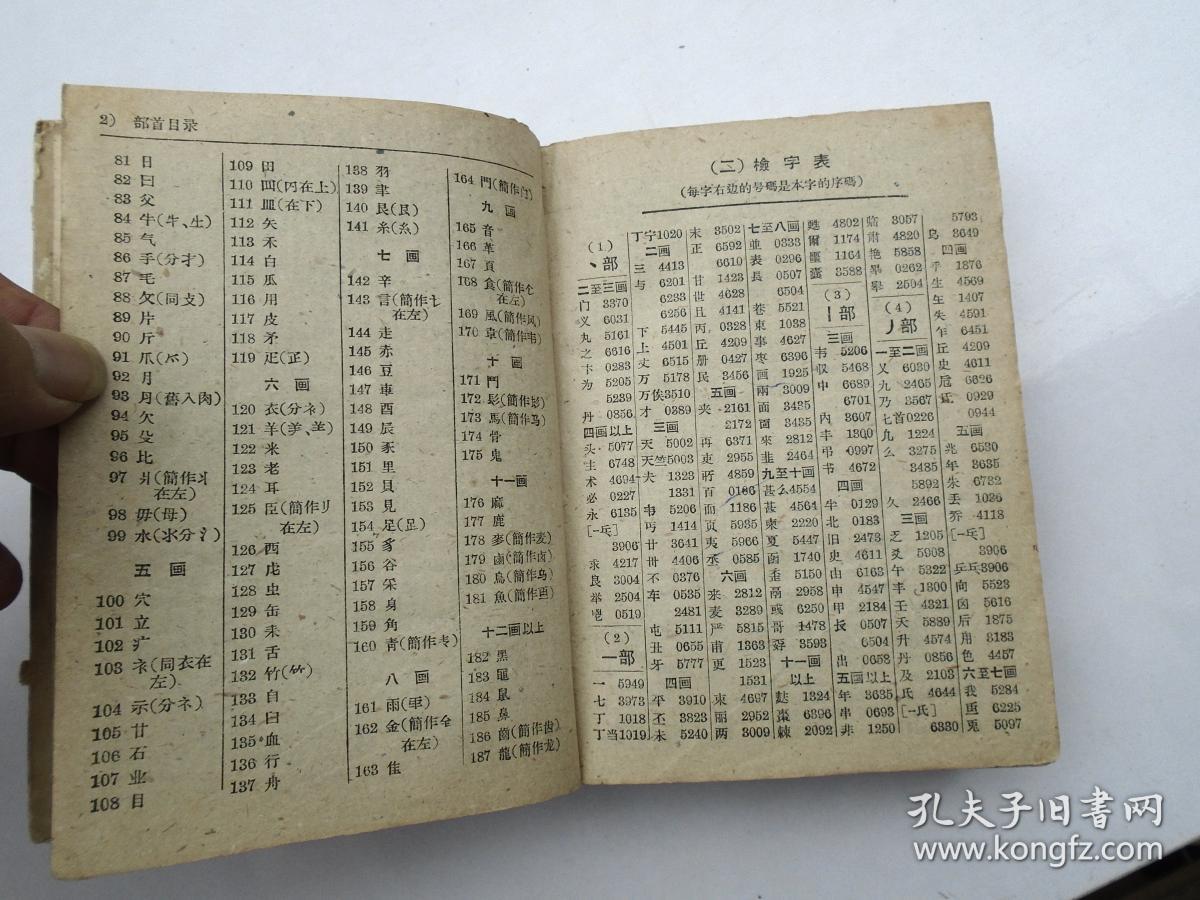 2) 部首目录
81 日
82 曰
83 父
84 牛(牜、𠂒)
85 气
86 手(分才)
87 毛
88 攵(同攴)
89 片
90 斤
91 爪(爫)
92 月
93 月(舊入肉)
94 欠
95 殳
96 比
97 爿(簡作丬
在左)
98 毋(母)
99 水(氺分氵)
五画
100 穴
101 立
102 疒
103 衤(同衣在
左)
104 示(分礻)
105 甘
106 石
107 业
108 目
109 田
110 四(罓在上)
111 皿(在下)
112 矢
113 禾
114 白
115 瓜
116 用
117 皮
118 矛
119 疋(正)
六画
120 衣(分衤)
121 羊(⺶、⺷)
122 米
123 老
124 耳
125 臣(簡作刂
在左)
126 西
127 虍
128 虫
129 缶
130 耒
131 舌
132 竹(⺮)
133 自
134 臼
135 血
136 行
137 舟
138 羽
139 聿
140 艮(良)
141 糸(糹)
七画
142 辛
143 言(簡作讠
在左)
144 走
145 赤
146 豆
147 車
148 酉
149 辰
150 豕
151 里
152 貝
153 見
154 足(𧾷)
155 豸
156 谷
157 釆
158 身
159 角
160 青(簡作龶)
八画
161 雨(⻗)
162 金(簡作钅
在左)
163 隹
164 門(簡作门)
九画
165 音
166 革
167 頁
168 食(簡作饣
在左)
169 風(簡作风)
170 韋(簡作韦)
十画
171 鬥
172 髟(簡作髟)
173 馬(簡作马)
174 骨
175 鬼
十一画
176 麻
177 鹿
178 麥(簡作麦)
179 鹵(簡作卤)
180 鳥(簡作鸟)
181 魚(簡作鱼)
十二画以上
182 黑
183 黽
184 鼠
185 鼻
186 齒(簡作齿)
187 龍(簡作龙)
(二)檢字表
(每字右边的号碼是本字的序碼)
(1)
丶部
二至三画
门 3370
义 6031
丸 5161
之 6616
卞 0283
为 5205
5239
丹 0856
四画以上
头 5077
主 6748
术 4694
必 0227
永 6135
[一乓]
3906
求 4217
良 3004
举 2504
0519
(2)
一部
一 5949
七 3973
丁 1018
丁当1019
丁宁1020
二画
三 4413
与 6201
6233
6256
下 5445
上 4501
丈 6515
万 5178
万俟3510
才 0389
三画
天 5002
天竺5003
夫 1323
1331
韦 5206
丐 1414
廿 3641
卅 4406
不 0376
车 0535
2481
屯 5111
丑 0655
牙 5777
四画
平 3910
丕 3823
未 5240
末 3502
正 6592
6610
甘 1423
世 4628
且 4141
丙 0328
丘 4209
册 0427
民 3456
五画
夹 2161
2172
再 6371
吏 2955
4859
百 0186
而 1186
页 5935
夷 5966
丞 0585
六画
来 2812
麦 3289
严 5815
甫 1363
更 1523
1531
束 4697
丽 2952
两 3009
七至八画
並 0333
表 0296
長 0507
6504
巷 5521
東 1038
事 4627
枣 6396
画 1925
兩 3009
面 3435
面 3435
來 2812
韭 2464
九至十画
甚么4554
甚 4564
柬 2220
夏 5447
函 1740
歪 5150
鬲 2958
6250
哥 1478
孬 3593
十一画
以上
1324
棗 6396
棘 2092
甦 4802
爾 1174
噩 1164
囊 3588
(3)
丨部
三画
韦 5206
5468
中 6689
6701
内 3607
丰 1300
弔 0997
书 4672
四画
5892
半 0129
北 0183
旧 2473
史 4611
由 6163
申 4547
甲 2184
长 0507
6504
出 0658
五画以上
年 3635
串 0693
非 1250
临 3057
肅 4820
艳 5858
畢 0262
2504
(4)
丿部
一至二画
义 6030
九 2465
乃 3567
七首0226
九 1224
么 3275
3485
久 2466
三画
乏 1205
爻 5908
午 5322
丰 1300
壬 4321
夭 5889
升 4574
丹 0856
及 2103
氏 4644
[一氏]
6330
5793
乌 3649
四画
乎 1876
生 4569
1407
失 4591
乍 6451
丘 4209
史 4611
卮 6626
0929
0944
五画
兆 6530
年 3635
朱 6732
丢 1036
乔 4118
[一乓]
3906
乒乓3906
向 5523
囟 5616
后 1875
用 3183
色 4457
六至七画
我 5284
重 6225
兎 5097
孔夫子旧书网
www.kongfz.com